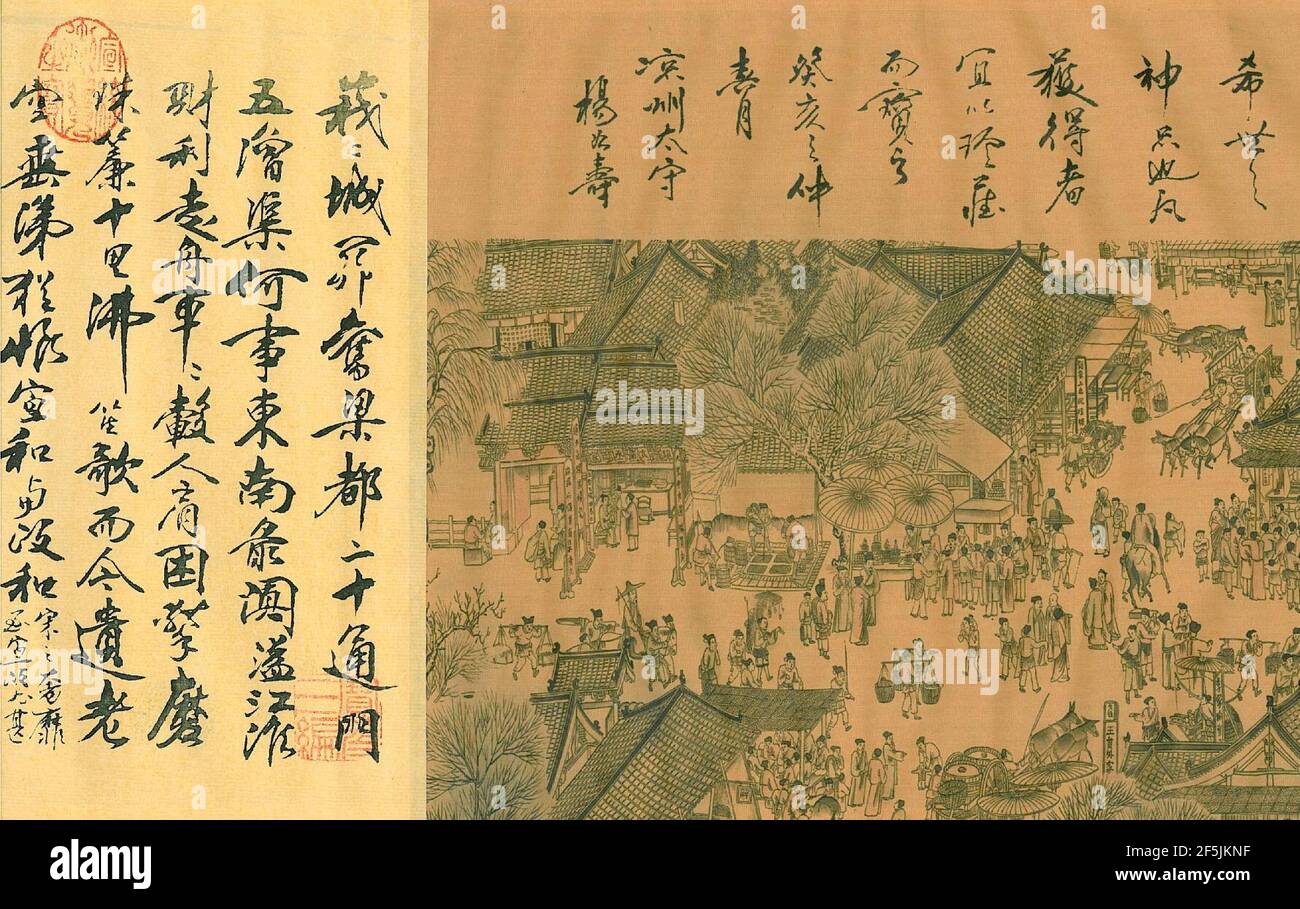 希世之
神品也凡
獲得者
宜以珍藏
而寶之
癸亥之仲
春月
凉州太守
楊 壽
峩〻城闕舊梁都二十通門
五漕渠何事東南最闐溢江淮
財利走舟車〻轂人肩困擊磨
珠簾十里沸笙歌而今遺老
空垂涕猶恨宣和与政和
宋之奢靡
至宣政為甚
王員外家
alamy
alamy
Image ID: 2F5JKNF
www.alamy.com